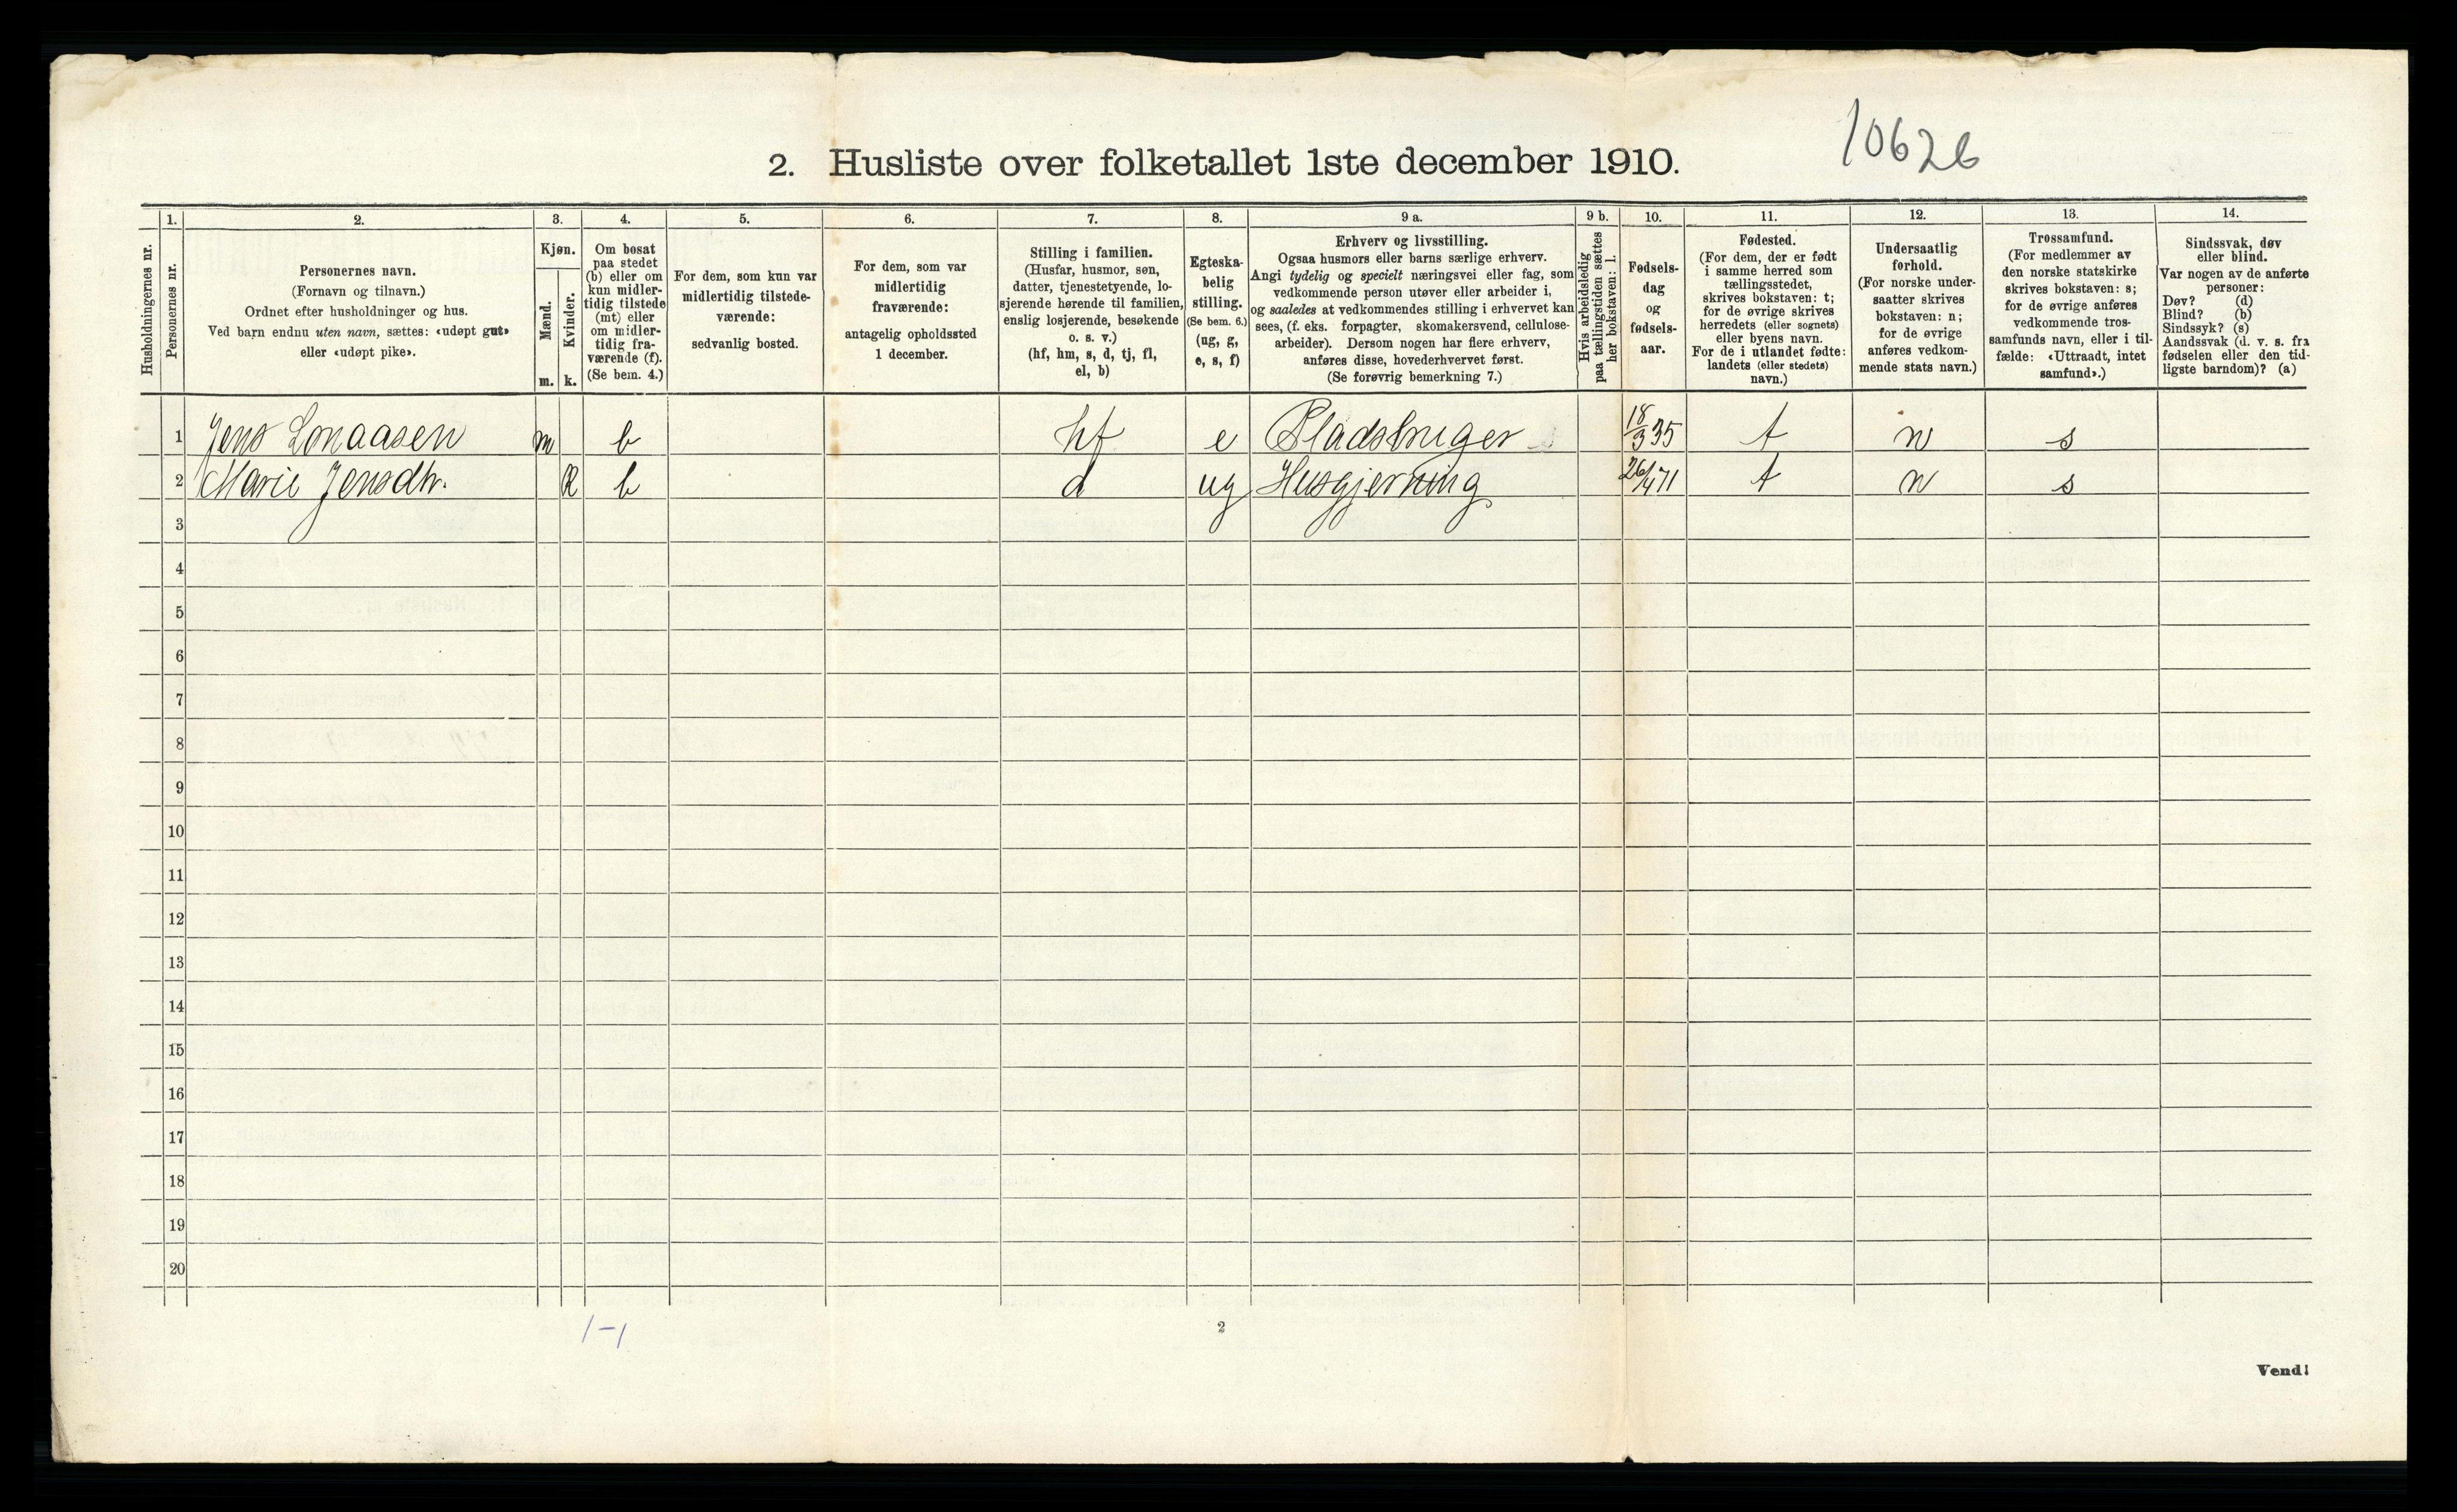 10626
2. Husliste over folketallet 1ste december 1910.
Husholdningernes nr.
1.
Personernes nr.
2.
Personernes navn.
(Fornavn og tilnavn.)
Ordnet efter husholdninger og hus.
Ved barn endnu uten navn, sættes: «udøpt gut»
eller «udøpt pike».
3.
Kjøn.
Mænd.
m.
Kvinder.
k.
4.
Om bosat
paa stedet
(b) eller om
kun midler-
tidig tilstede
(mt) eller
om midler-
tidig fra-
værende (f).
(Se bem. 4.)
5.
For dem, som kun var
midlertidig tilstede-
værende:
sedvanlig bosted.
6.
For dem, som var
midlertidig
fraværende:
antagelig opholdssted
1 december.
7.
Stilling i familien.
(Husfar, husmor, søn,
datter, tjenestetyende, lo-
sjerende hørende til familien,
enslig losjerende, besøkende
o. s. v.)
(hf, hm, s, d, tj, fl,
el, b)
8.
Egteska-
belig
stilling.
(Se bem. 6.)
(ug, g,
e, s, f)
9 a.
Erhverv og livsstilling.
Ogsaa husmors eller barns særlige erhverv.
Angi tydelig og specielt næringsvei eller fag, som
vedkommende person utøver eller arbeider i,
og saaledes at vedkommendes stilling i erhvervet kan
sees, (f. eks. forpagter, skomakersvend, cellulose-
arbeider). Dersom nogen har flere erhverv,
anføres disse, hovederhvervet først.
(Se forøvrig bemerkning 7.)
9 b.
Hvis arbeidsledig
paa tællingstiden sættes
her bokstaven: l.
10.
Fødsels-
dag
og
fødsels-
aar.
11.
Fødested.
(For dem, der er født
i samme herred som
tællingsstedet,
skrives bokstaven: t;
for de øvrige skrives
herredets (eller sognets)
eller byens navn.
For de i utlandet fødte:
landets (eller stedets)
navn.)
12.
Undersaatlig
forhold.
(For norske under-
saatter skrives
bokstaven: n;
for de øvrige
anføres vedkom-
mende stats navn.)
13.
Trossamfund.
(For medlemmer av
den norske statskirke
skrives bokstaven: s;
for de øvrige anføres
vedkommende tros-
samfunds navn, eller i til-
fælde: «Uttraadt, intet
samfund».)
14.
Sindssvak, døv
eller blind.
Var nogen av de anførte
personer:
Døv? (d)
Blind? (b)
Sindssyk? (s)
Aandssvak (d. v. s. fra
fødselen eller den tid-
ligste barndom)? (a)
1 Jens Lonaasen m b hf e Pladsbruger 18/3 35 t n s
2 Marie Jensdtr. k b d ug Husgjerning 26/4 71 t n s
3
4
5
6
7
8
9
10
11
12
13
14
15
16
17
18
19
20
1-1
2
Vend!